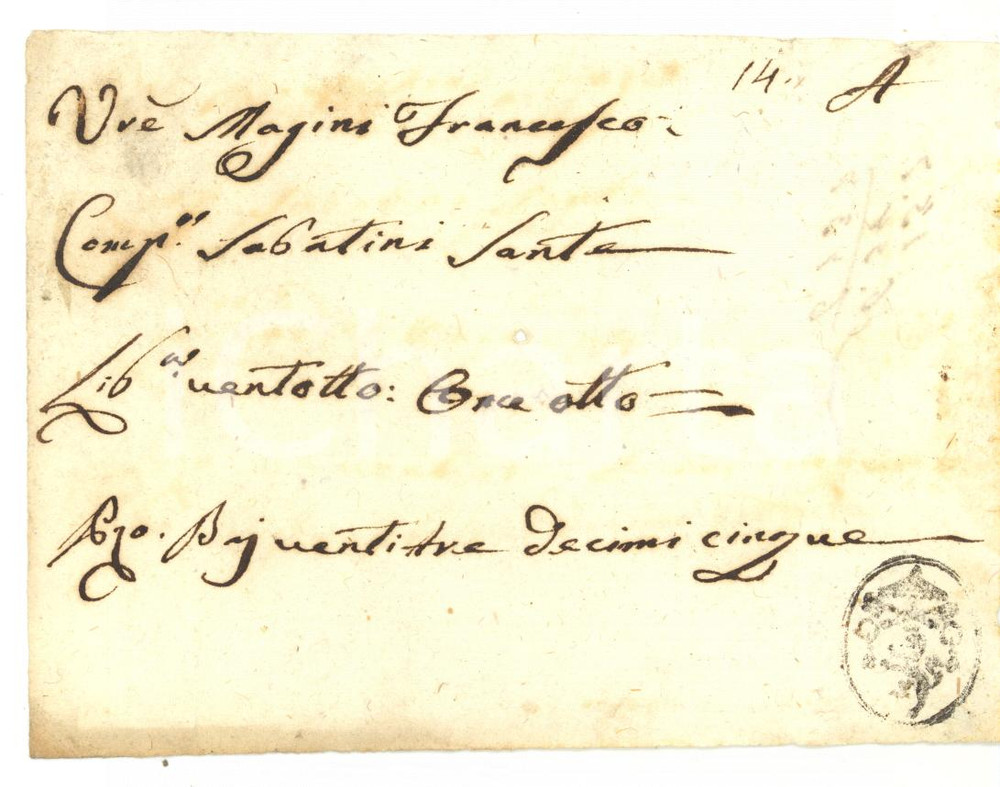 14. A
Vrē Magini Francesco.
Comp.re Sabatini Sante
Lib.re ventotto: Once otto
Pzo. Baj ventitre Decimi cinque